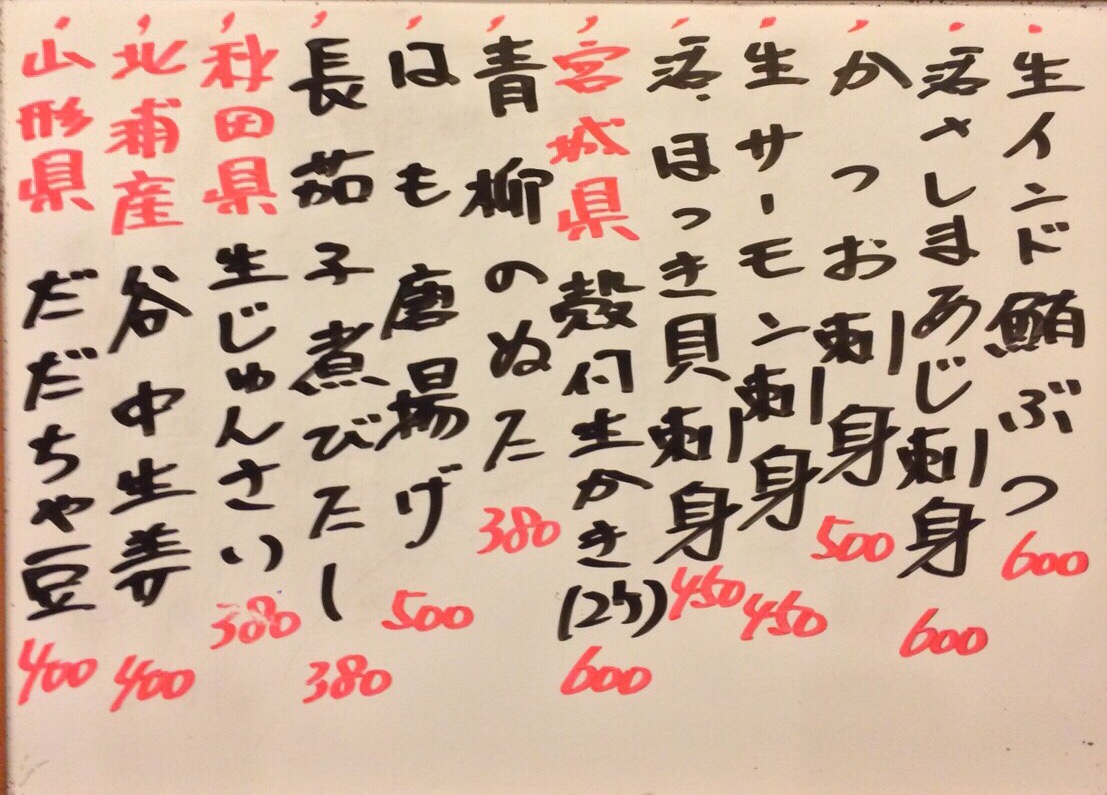 生インド鮪ぶつ 600
活さしまあじ刺身 600
かつお刺身 500
生サーモン刺身 450
活ほっき貝刺身 450
宮城県 殻付生かき(2ケ) 600
青柳のぬた 380
はも唐揚げ 500
長茄子煮びたし 380
秋田県 生じゅんさい 380
北浦産 谷中生姜 400
山形県 だだちゃ豆 400